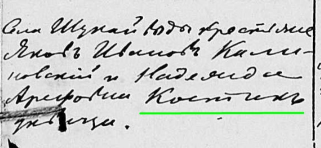 Села Шукайводы крестьяне
Яковъ Ивановъ Кали-
новскій и Надежда
Арефьевна Костикъ
дѣвица.